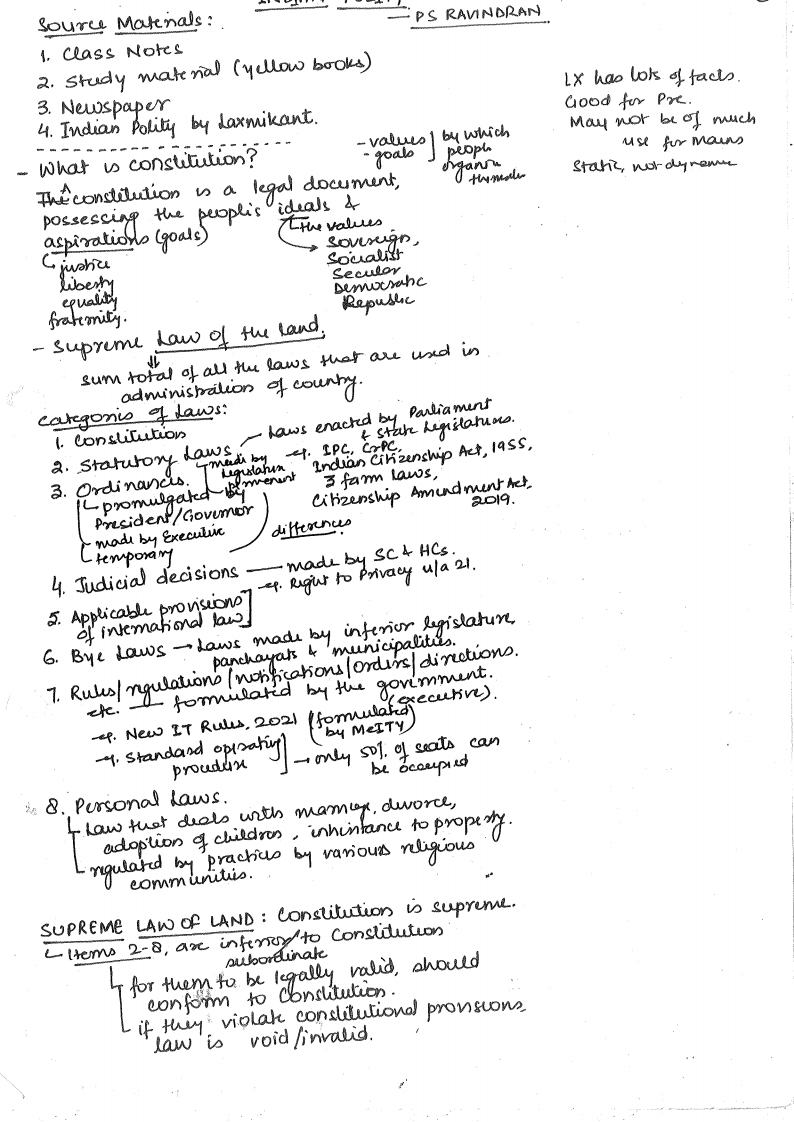 INDIAN POLITY
— PS RAVINDRAN
Source Materials:
1. Class Notes
2. Study material (yellow books)
3. Newspaper
4. Indian Polity by Laxmikant.
LX has lots of facts.
Good for Pre.
May not be of much
use for Mains
Static, not dynamic
- What is constitution?
- values
- goals
by which
people
organise
themselves
The constitution is a legal document,
possessing the people's ideals &
aspirations (goals)
justice
liberty
equality
fraternity.
the values
Sovereign,
Socialist
Secular
Democratic
Republic
- Supreme Law of the Land.
sum total of all the laws that are used in
administration of country.
Categories of Laws:
1. Constitution
2. Statutory Laws — Laws enacted by Parliament
& State Legislatures.
made by
Legislature
permanent
eg. IPC, CrPC,
Indian Citizenship Act, 1955,
3 farm laws,
Citizenship Amendment Act,
2019.
3. Ordinances.
promulgated by
President/Governor
made by Executive
temporary
differences
4. Judicial decisions — made by SC & HCs.
eg. Right to Privacy u/a 21.
5. Applicable provisions
of international law
6. Bye Laws → Laws made by inferior legislature,
panchayats & municipalities.
7. Rules/regulations/notifications/orders/directions.
etc. — formulated by the government.
(executive).
eg. New IT Rules, 2021 (formulated
by MeITY)
eg. Standard operating
procedure
→ only 50% of seats can
be occupied
8. Personal Laws.
Law that deals with marriage, divorce,
adoption of children, inheritance to property.
regulated by practices by various religious
communities.
SUPREME LAW OF LAND: Constitution is supreme.
Items 2-8, are inferior/to Constitution
subordinate
for them to be legally valid, should
conform to Constitution.
if they violate constitutional provisions,
law is void/invalid.